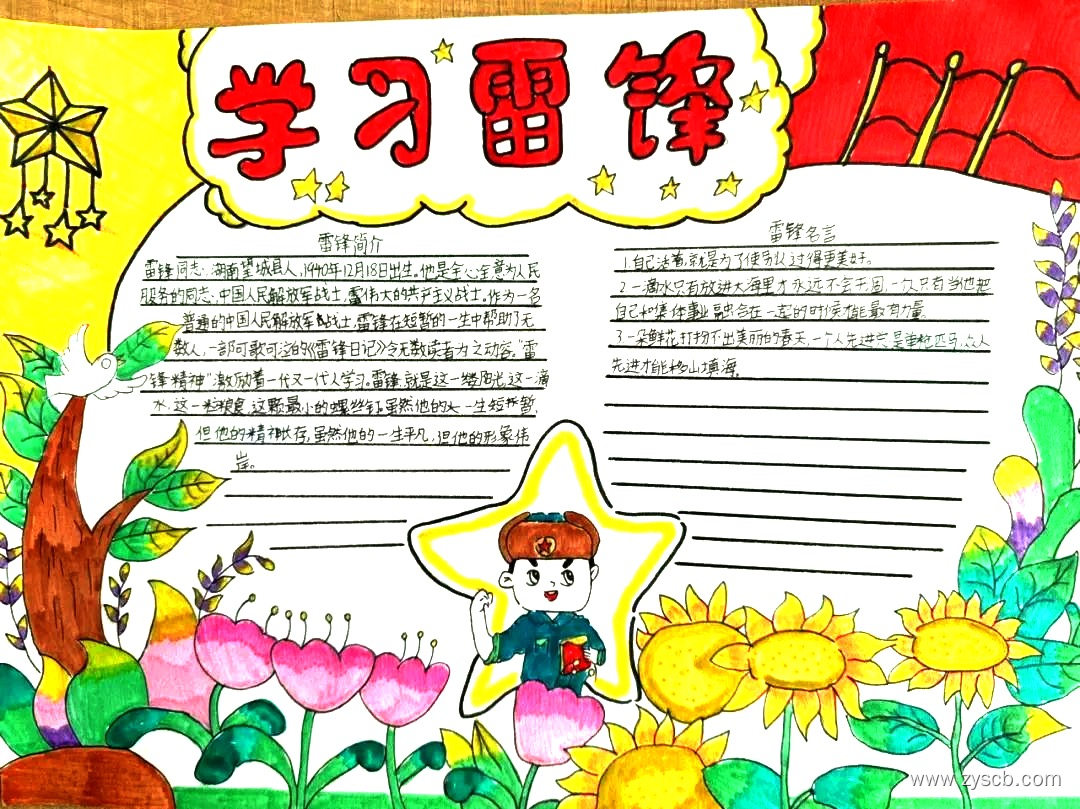 学习雷锋
雷锋简介
雷锋同志,湖南望城县人,1940年12月18日出生。他是全心全意为人民
服务的同志,中国人民解放军战士,伟大的共产主义战士。作为一名
普通的中国人民解放军战士,雷锋在短暂的一生中帮助了无
数人,一部可歌可泣的《雷锋日记》令无数读者为之动容。“雷
锋精神”激励着一代又一代人学习。雷锋,就是这一缕阳光,这一滴
水,这一粒粮食,这颗最小的螺丝钉,虽然他的一生短暂,
但他的精神长存,虽然他的一生平凡,但他的形象伟
岸。
雷锋名言
1.自己活着,就是为了使别人过得更美好。
2.一滴水只有放进大海里才永远不会干涸,一个人只有当他把
自己和集体事业融合在一起的时候才能最有力量。
3.一朵鲜花打扮不出美丽的春天,一个人先进只是单枪匹马,众人
先进才能移山填海。
www.zyscb.com